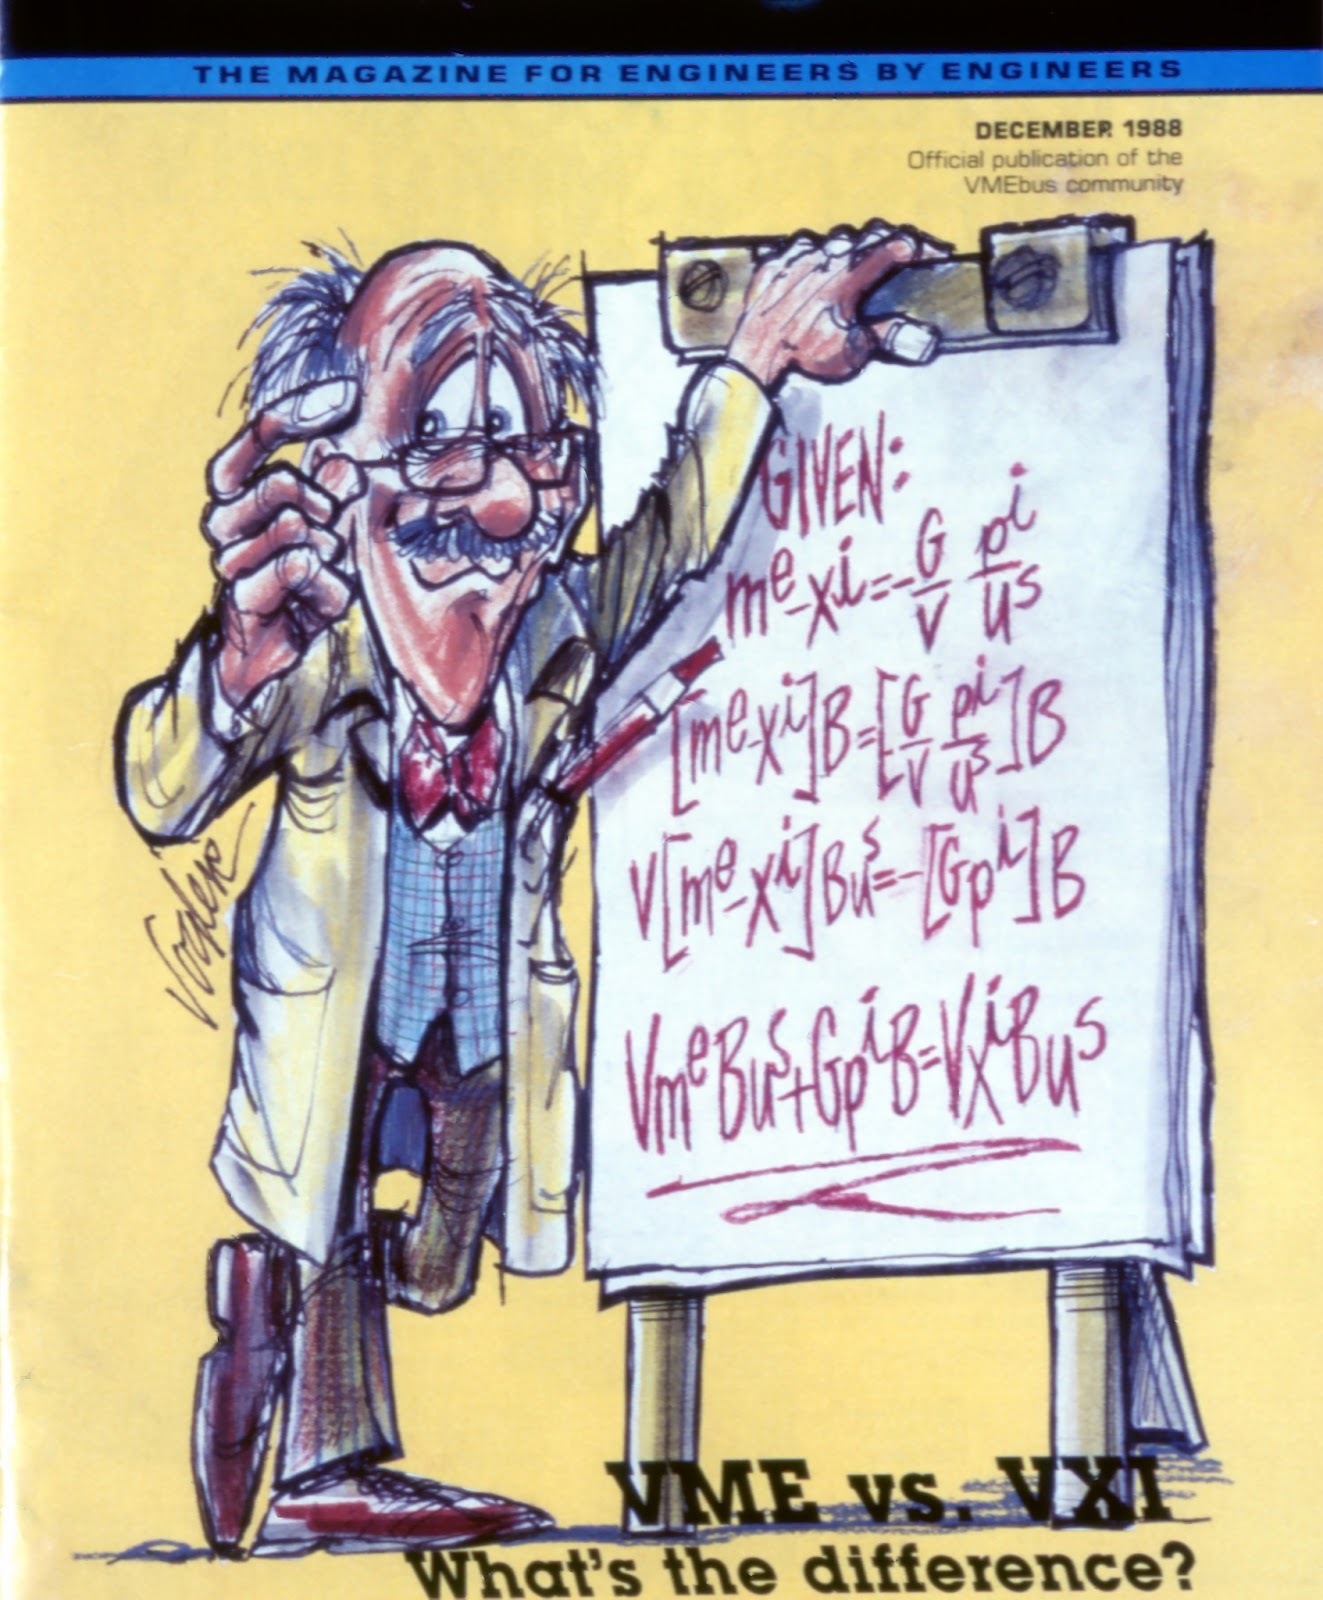 THE MAGAZINE FOR ENGINEERS BY ENGINEERS
DECEMBER 1988
Official publication of the
VMEbus community
GIVEN:
m^e-x^i=-G/V p^i/u^s
[m^e-x^i]B=[-G/V p^i/u^s]B
V[m^e-x^i]Bu^s=-[Gp^i]B
Vm^eBu^s+Gp^iB=Vx^iBu^s
VME vs. VXI
What's the difference?